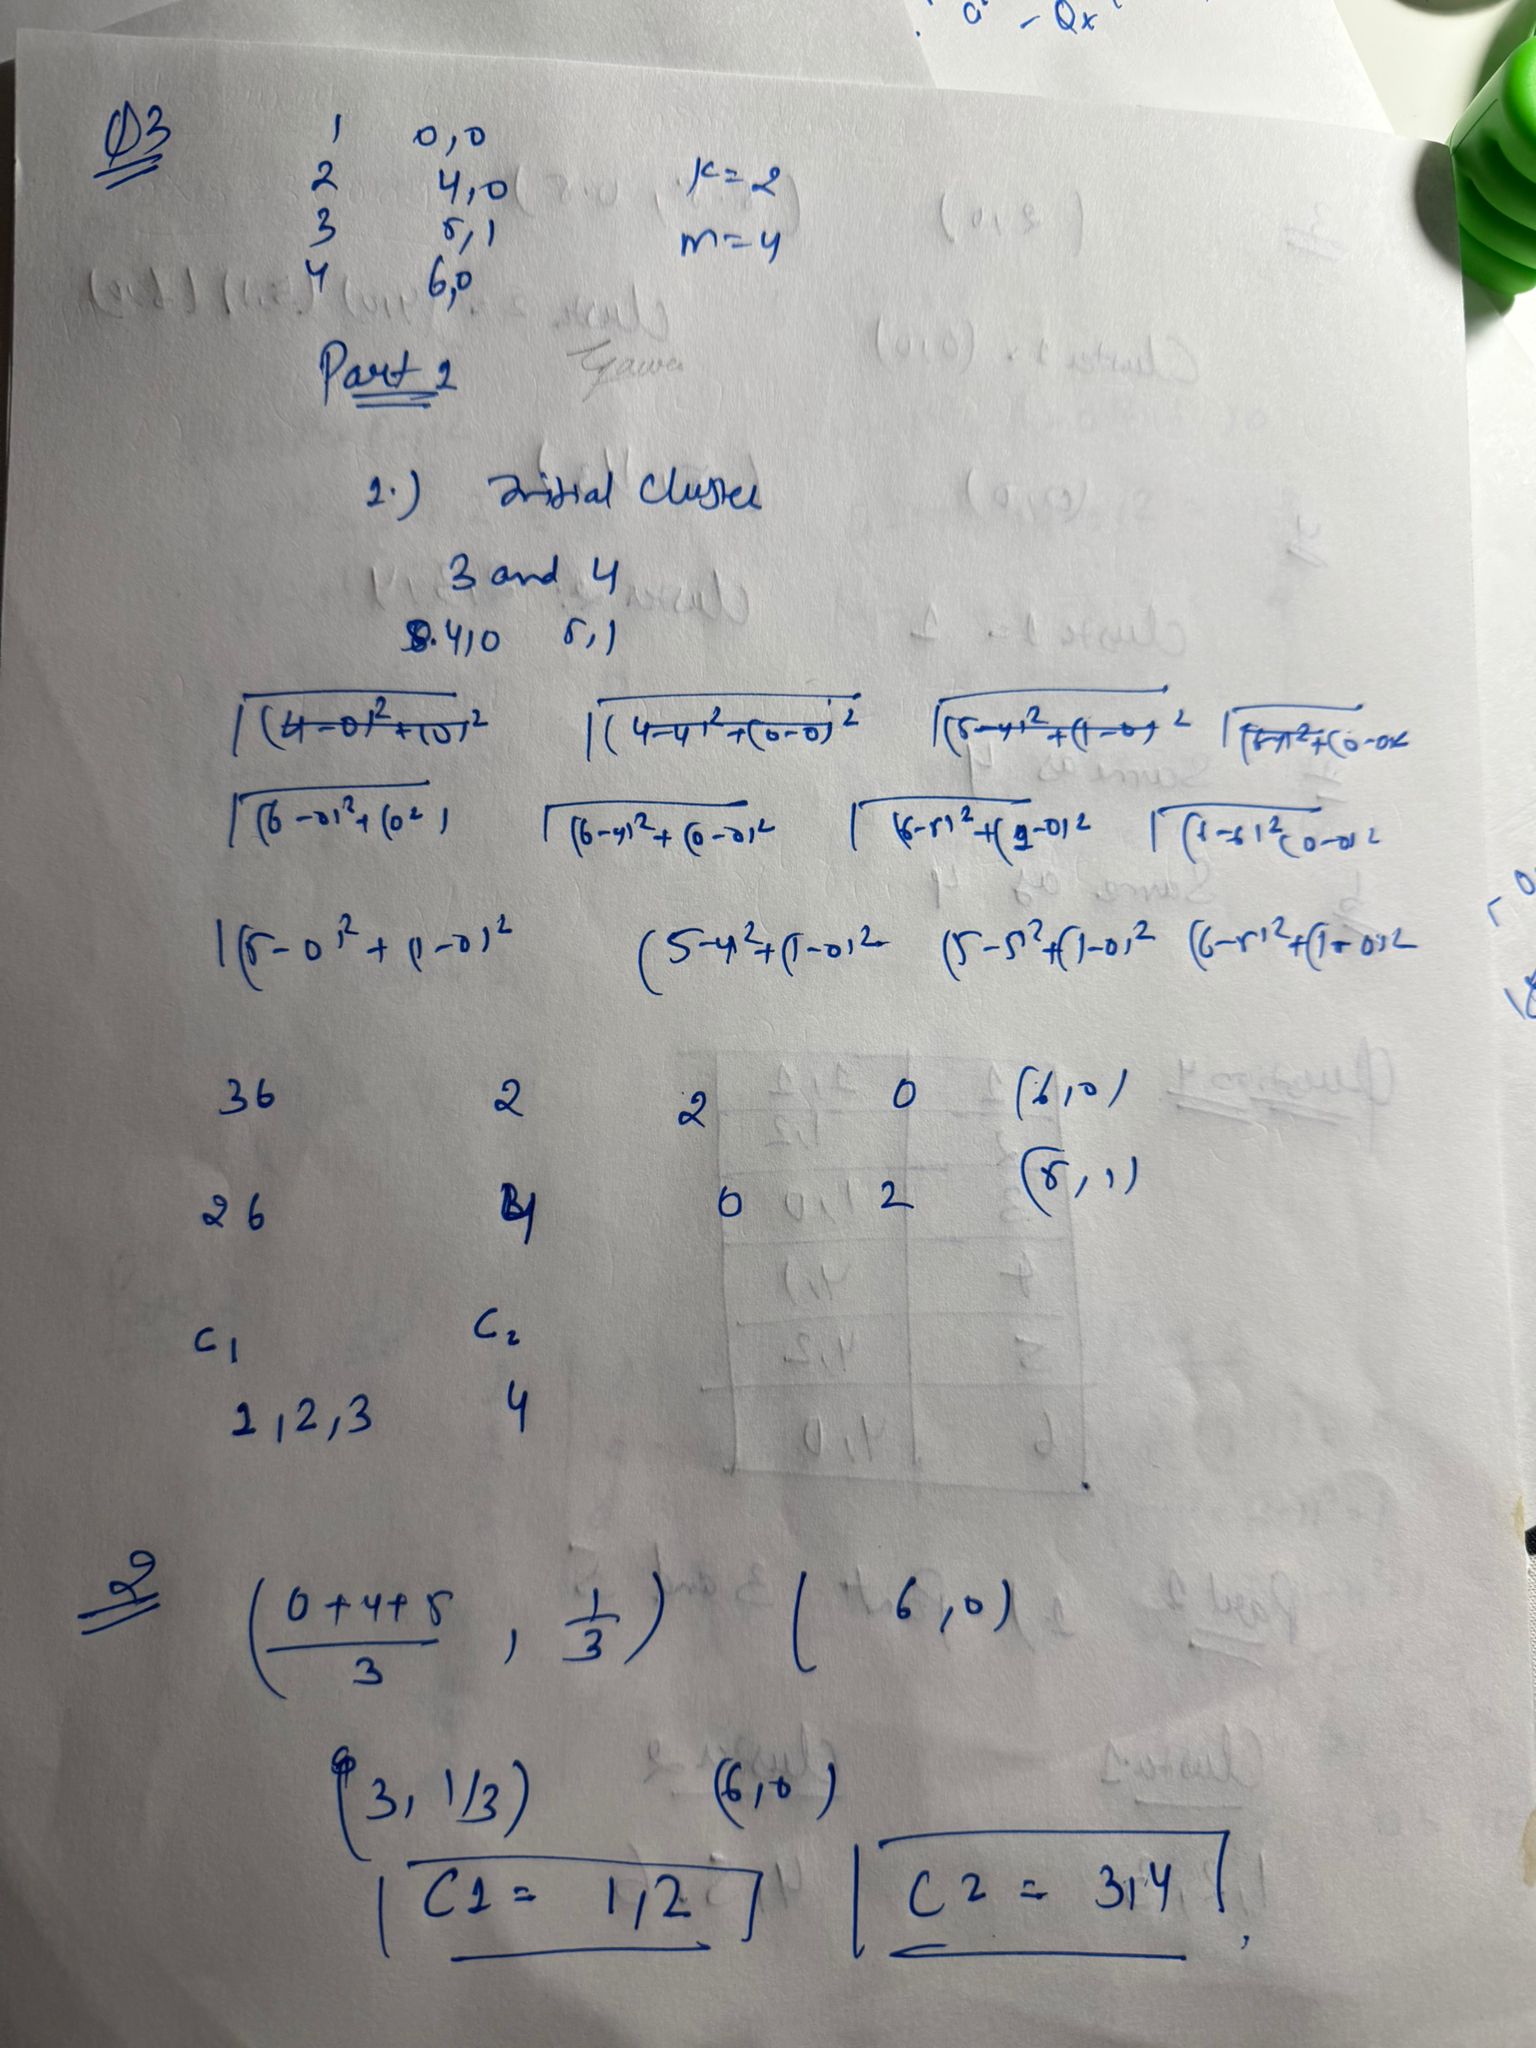 a - Qx
Q3
1 0,0
2 4,0 K=2
3 5,1 m=4
4 6,0
Part 1
1.) Initial Cluster
3 and 4
4,0 5,1
√(4-0)²+(0)² √(4-4)²+(0-0)² √(5-4)²+(1-0)² √(6-4)²+(0-0)²
√(6-0)²+(0²) √(6-4)²+(0-0)² √(6-5)²+(1-0)² √(6-6)²(0-0)²
√(5-0)²+(1-0)² (5-4)²+(1-0)² (5-5)²+(1-0)² (6-5)²+(1-0)²
36 2 2 0 (6,0)
26 0 2 (5,1)
C1 C2
1,2,3 4
2 (0+4+5/3, 1/3) (6,0)
(3, 1/3) (6,0)
C1 = 1,2 C2 = 3,4